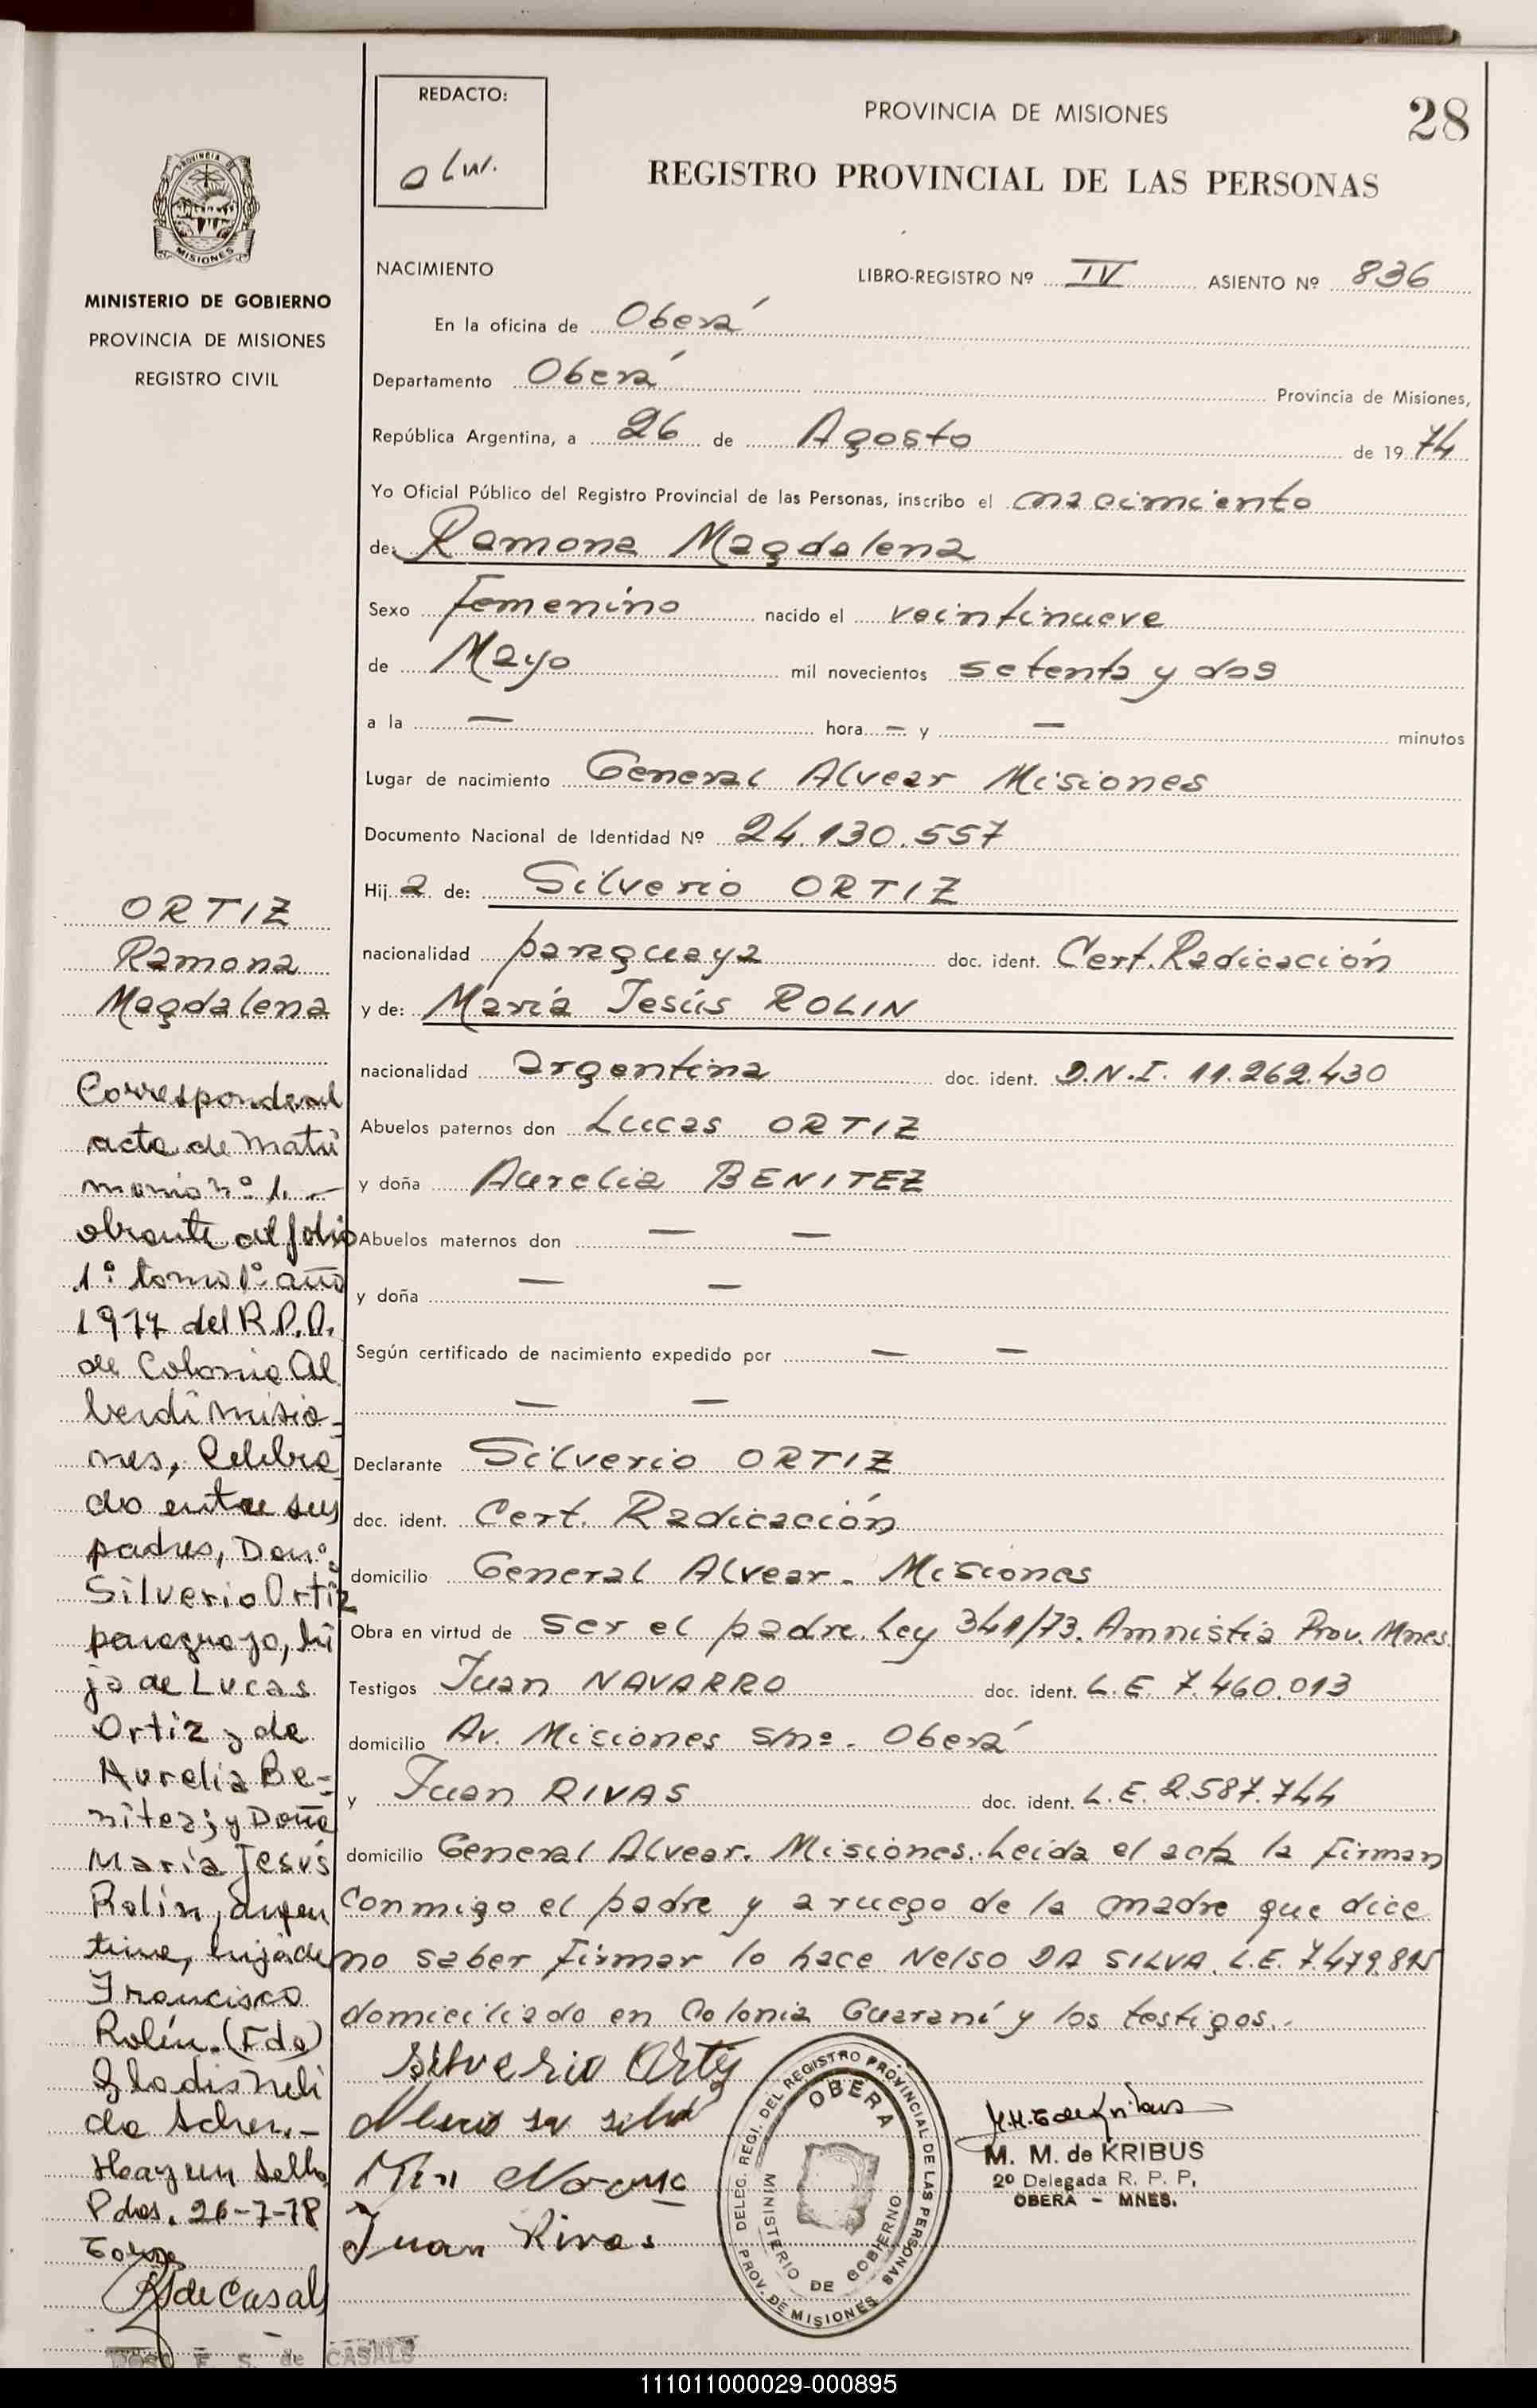 REDACTO:
PROVINCIA DE MISIONES
28
REGISTRO PROVINCIAL DE LAS PERSONAS
MISIONES
MINISTERIO DE GOBIERNO
PROVINCIA DE MISIONES
REGISTRO CIVIL
NACIMIENTO LIBRO-REGISTRO Nº IV ASIENTO Nº 836
En la oficina de Oberá
Departamento Oberá Provincia de Misiones,
República Argentina, a 26 de Agosto de 1974
Yo Oficial Público del Registro Provincial de las Personas, inscribo el nacimiento
de: Ramona Magdalena
Sexo Femenino nacido el veintinueve
de Mayo mil novecientos setenta y dos
a la — hora — y — minutos
Lugar de nacimiento General Alvear Misiones
Documento Nacional de Identidad Nº 24.130.557
Hij a de: Silverio ORTIZ
nacionalidad paraguaya doc. ident. Cert. Radicación
y de: María Jesús ROLIN
nacionalidad argentina doc. ident. D.N.I. 11.262.430
Abuelos paternos don Lucas ORTIZ
y doña Aurelia BENITEZ
Abuelos maternos don — —
y doña — —
Según certificado de nacimiento expedido por — —
— —
Declarante Silverio ORTIZ
doc. ident. Cert. Radicación
domicilio General Alvear - Misiones
Obra en virtud de ser el padre. Ley 341/73. Amnistia Prov. Mnes.
Testigos Juan NAVARRO doc. ident. L.E. 7.460.013
domicilio Av. Misiones s/nº - Oberá
y Juan RIVAS doc. ident. L.E. 2.587.744
domicilio General Alvear. Misiones. Leida el acta la firman
conmigo el padre y a ruego de la madre que dice
no saber firmar lo hace Nelso DA SILVA. L.E.
domiciliado en Colonia Guaraní y los testigos.
Silverio Ortiz
Juan Rivas
DELEG. REGI. DEL REGISTRO PROVINCIAL DE LAS PERSONAS
OBERA
MINISTERIO DE GOBIERNO
PROV. DE MISIONES
M. M. de KRIBUS
2º Delegada R. P. P,
OBERA - MNES.
ORTIZ
Ramona
Magdalena
Corresponde al
acta de matri
monio nº 1.—
obrante al folio
1º tomo 1º año
1977 del R.P.P.
de Colonia Al
berdi Misio-
nes, Celebra
do entre sus
padres, Don:
Silverio Ortiz
paraguayo, hi
jo de Lucas
Ortiz y de
Aurelia Be-
nitez; y Doña
María Jesús
Rolin, argen
tina, hija de
Francisco
Rolín. (Fdo)
Hay un sello
Pdas. 26-7-78
de Casals
E. S. de CASALS
111011000029-000895